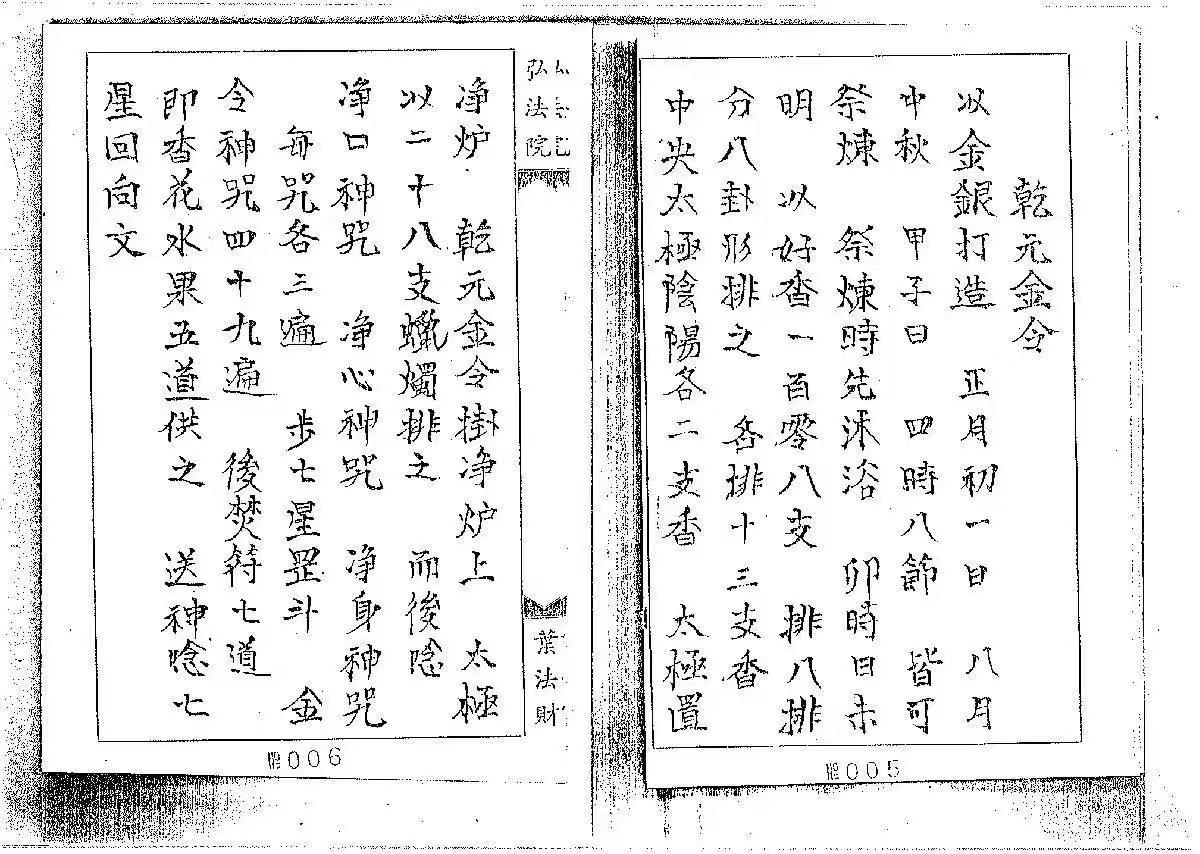 乾元金令
以金銀打造　正月初一日　八月
中秋　甲子日　四時八節　皆可
祭煉　祭煉時先沐浴　卯時日未
明　以好香一百零八支　排八排
分八卦形排之　各排十三支香
中央太極陰陽各二支香　太極置
005
弘法院
葉法財
净炉　乾元金令掛净炉上　太極
以二十八支蠟燭排之　而後唸
净口神咒　净心神咒　净身神咒
每咒各三遍　步七星罡斗　金
令神咒四十九遍　後焚符七道
即香花水果五道供之　送神唸七
星回向文
006